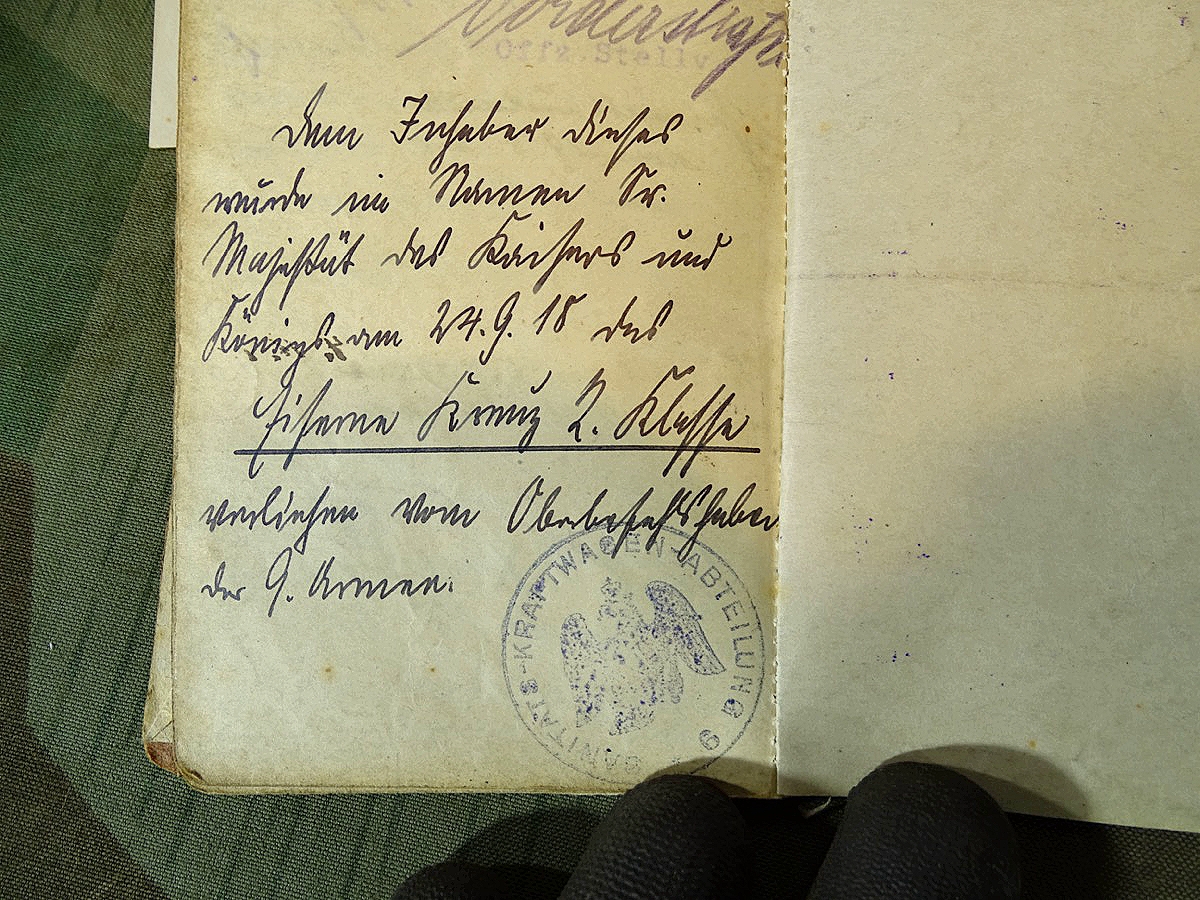 Offz. Stellv.
Dem Inhaber dieses
wurde im Namen Sr.
Majestät des Kaisers und
Königs am 24.9.18 das
Eiserne Kreuz 2. Klasse
verliehen vom Oberbefehlshaber
der 9. Armee.
SANITÄTS-KRAFTWAGEN-ABTEILUNG 9